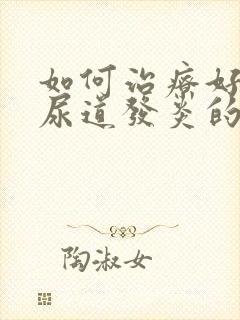 如何治療好
尿道發炎的
陶淑女